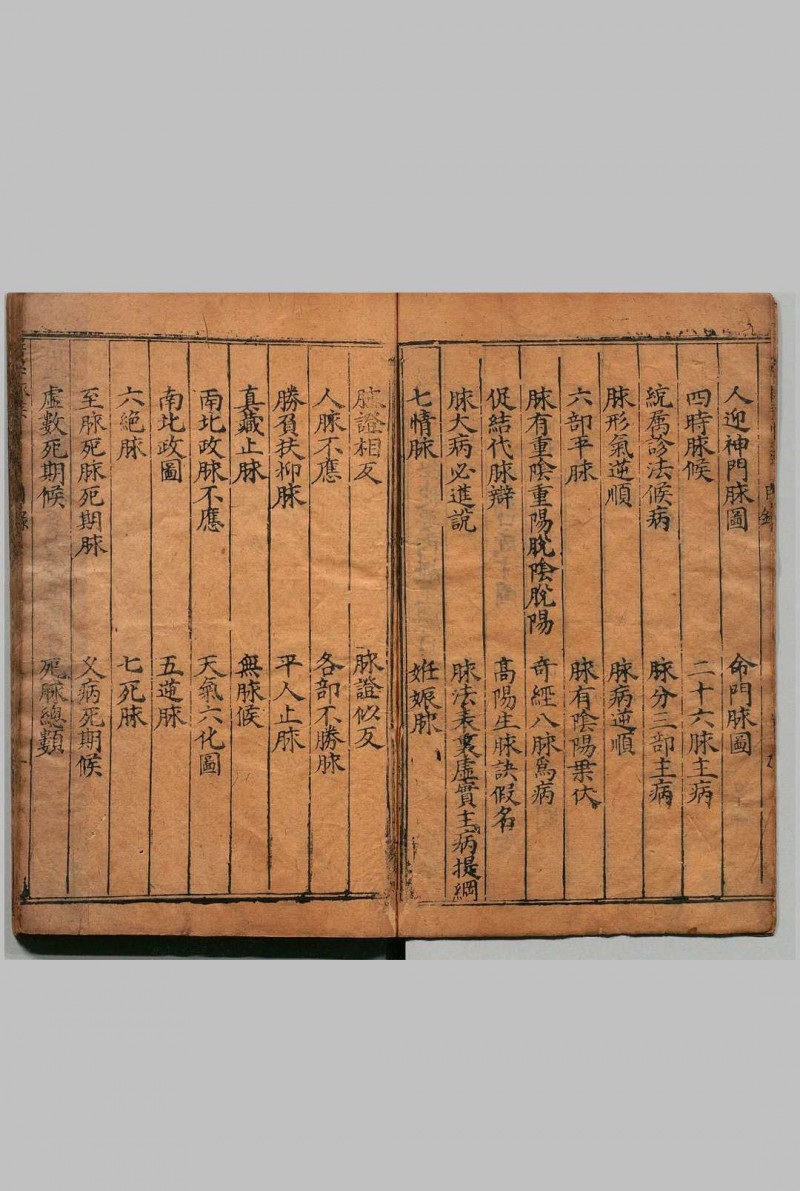 人迎神門脉圖　命門脉圖
四時脉候　二十六脉主病
統属診法候病　脉分三部主病
脉形氣逆順　脉病逆順
六部平脉　脉有陰陽乗伏
脉有重陰重陽脫陰脫陽　奇經八脉爲病
促結代脉辯　高陽生脉訣假名
脉大病必進說　脉法表裏虛實主病提綱
七情脉　姙娠脉
脉證相反　脉證似反
人脉不應　各部不勝脉
勝負扶抑脉　平人止脉
真藏止脉　無脉候
南北政脉不應　天氣六化圖
南北政圖　五逆脉
六絕脉　七死脉
至脉死脉死期脉　父病死期候
虛數死期候　死脉總類